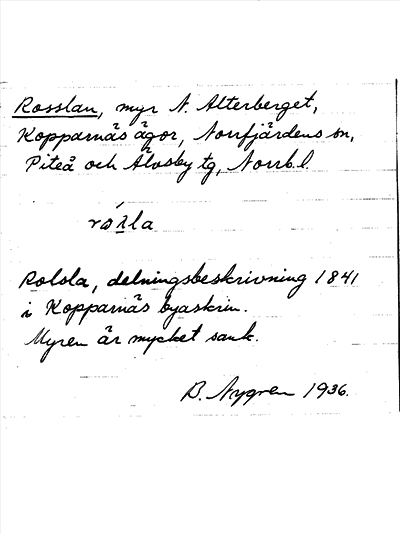 Rosslan, myr N. Alterberget,
Kopparnäs ägor, Norrfjärdens sn,
Piteå och Älvsby tg, Norrb.l
Rolsla, delningsbeskrivning 1841
i Kopparnäs byaskrin.
Myren är mycket sank.
B. Nygren 1936.